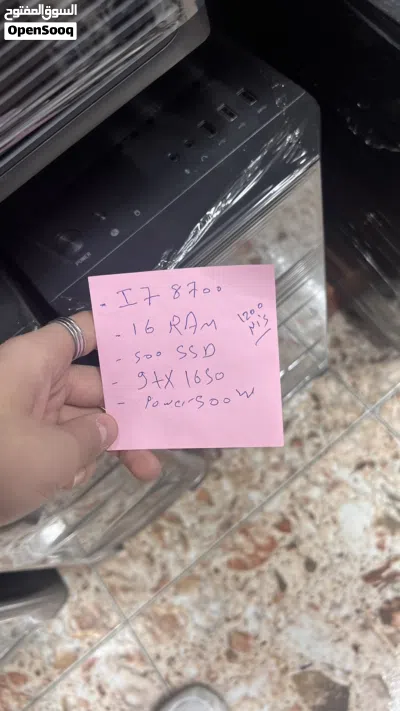 السوق المفتوح
OpenSooq
- I7 8700
- 16 RAM
- 500 SSD
- gtX 1650
- Power 500 W
1200
NIS